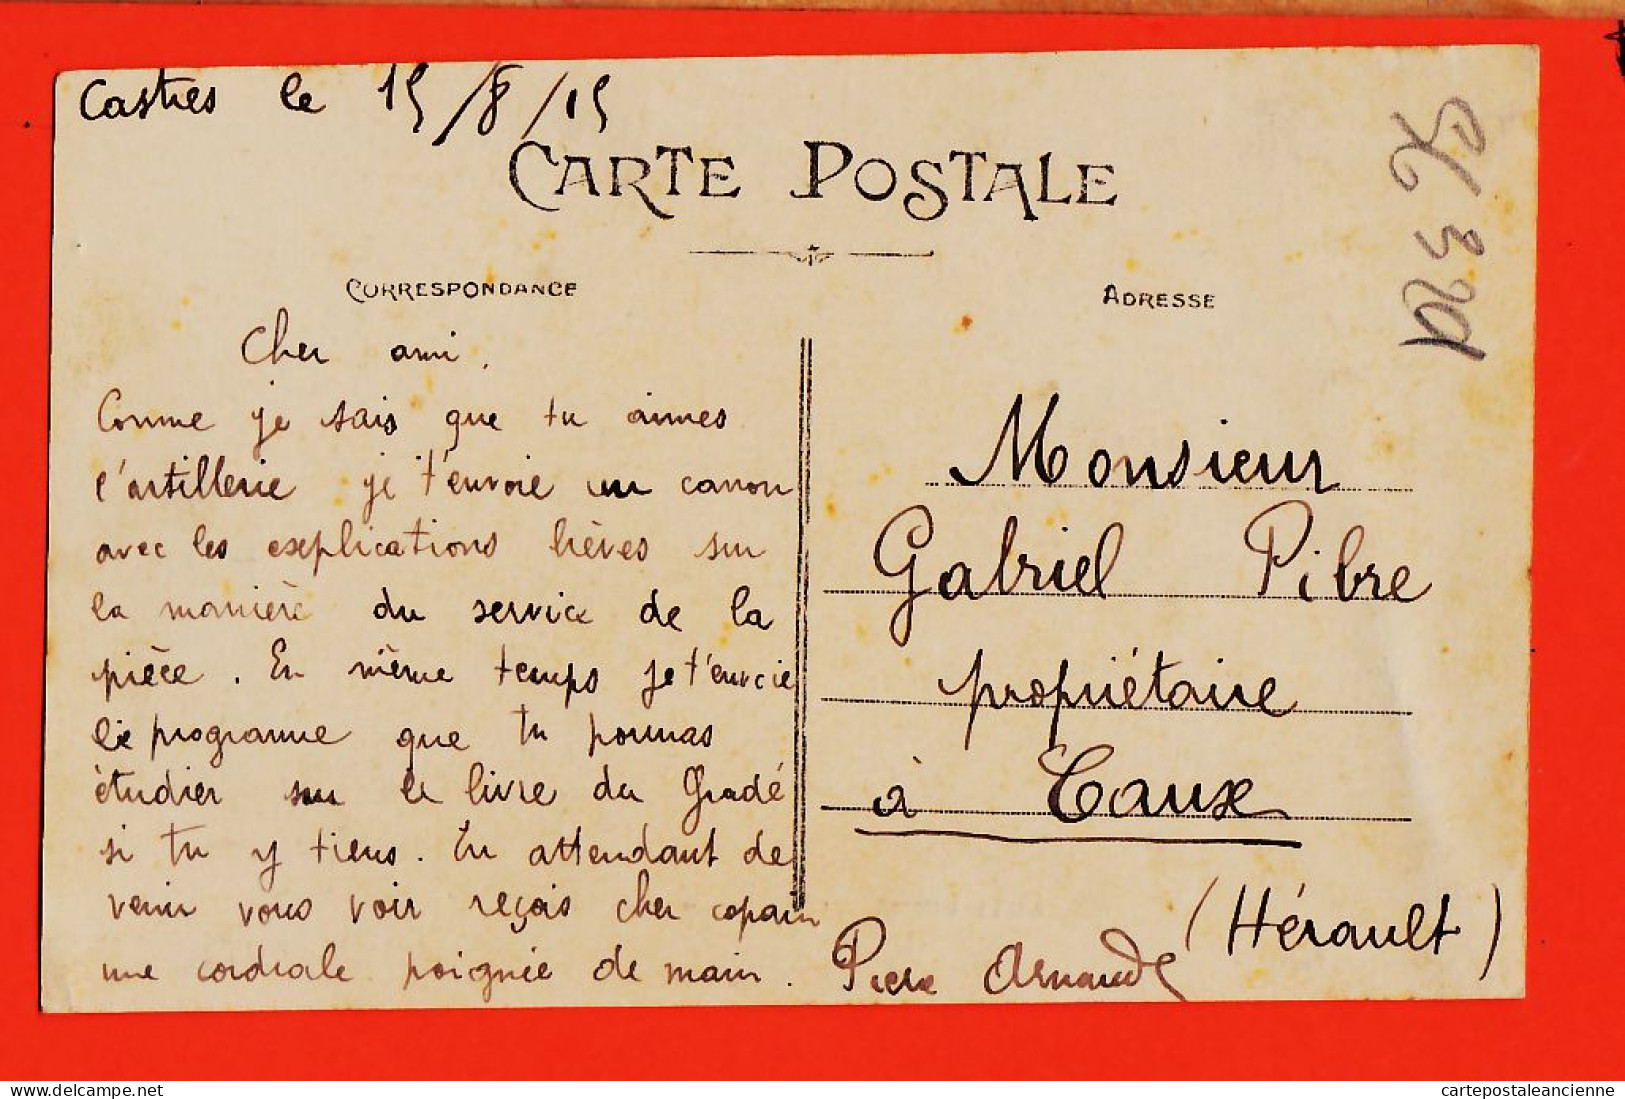 Castres le 15/8/15
CARTE POSTALE
CORRESPONDANCE
ADRESSE
Cher ami,
Comme je sais que tu aimes
l'artillerie je t'envoie un canon
avec les explications brèves sur
la manière du service de la
pièce. En même temps je t'envoie
le programme que tu pourras
étudier sur le livre du Gradé
si tu y tiens. En attendant de
venir vous voir reçois cher copain
une cordiale poignée de main.
Pierre Arnaud
Monsieur
Gabriel Pibre
propriétaire
à Caux
(Hérault)
delcampe.net
cartepostaleancienne